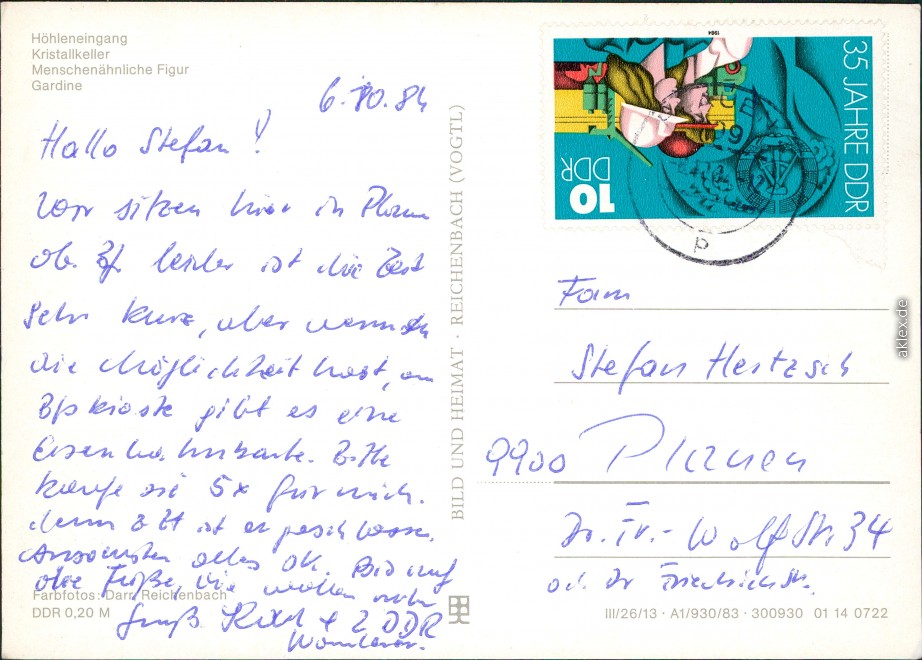 Höhleneingang
Kristallkeller
Menschenähnliche Figur
Gardine
6.10.84
Hallo Stefan!
sitzen hier in Plauen
ob. Bf. leider ist die Zeit
sehr kurz, aber wenn du
die Möglichkeit hast, am
Bfskioske gibt es eine
Eisenbahnkarte. Bitte
kaufe sie 5x für mich.
denn z Zt ist er geschlossen.
Ansonsten alles OK. Bis auf
die Füße, die wollen nicht
Gruß + 2 DDR
Wanderer.
Farbfotos: Darr, Reichenbach
DDR 0,20 M
BILD UND HEIMAT · REICHENBACH (VOGTL)
1984
35 JAHRE DDR
DDR
10
p
Fam
Stefan Hertzsch
9900 Plauen
Dr. Fr.-Wolf Str. 34
od. Dr Friedrichstr.
III/26/13 · A1/930/83 · 300930 01 14 0722
aklex.de